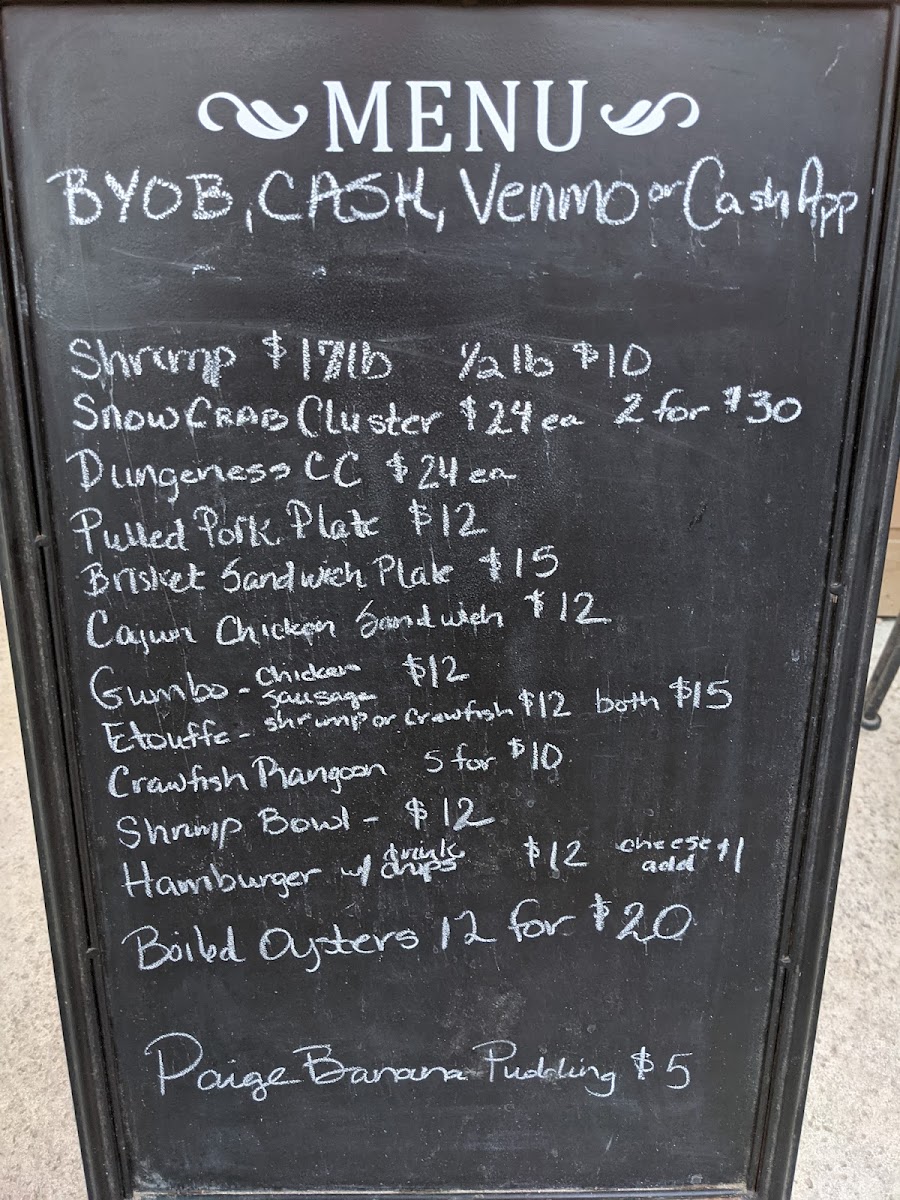 MENU
BYOB, CASH, Venmo or Cash App
Shrimp $17lb 1/2 lb $10
SNOW CRAB Cluster $24 ea 2 for $30
Dungeness CC $24 ea
Pulled Pork Plate $12
Brisket Sandwich Plate $15
Cajun Chicken Sandwich $12
Gumbo - chicken sausage $12
Etouffe - shrimp or crawfish $12 both $15
Crawfish Rangoon 5 for $10
Shrimp Bowl - $12
Hamburger w/ drink chips $12 cheese add $1
Boiled Oysters 12 for $20
Paige Banana Pudding $5